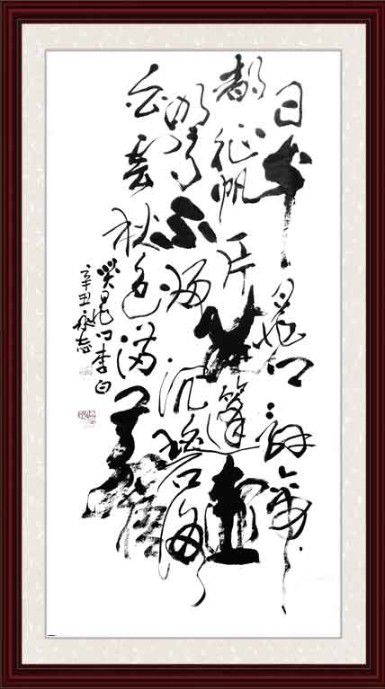 日本晁卿辞帝
都征帆一片绕蓬壶
明月不归沉碧海
白云秋色满苍梧
哭晁卿李白
辛丑永志